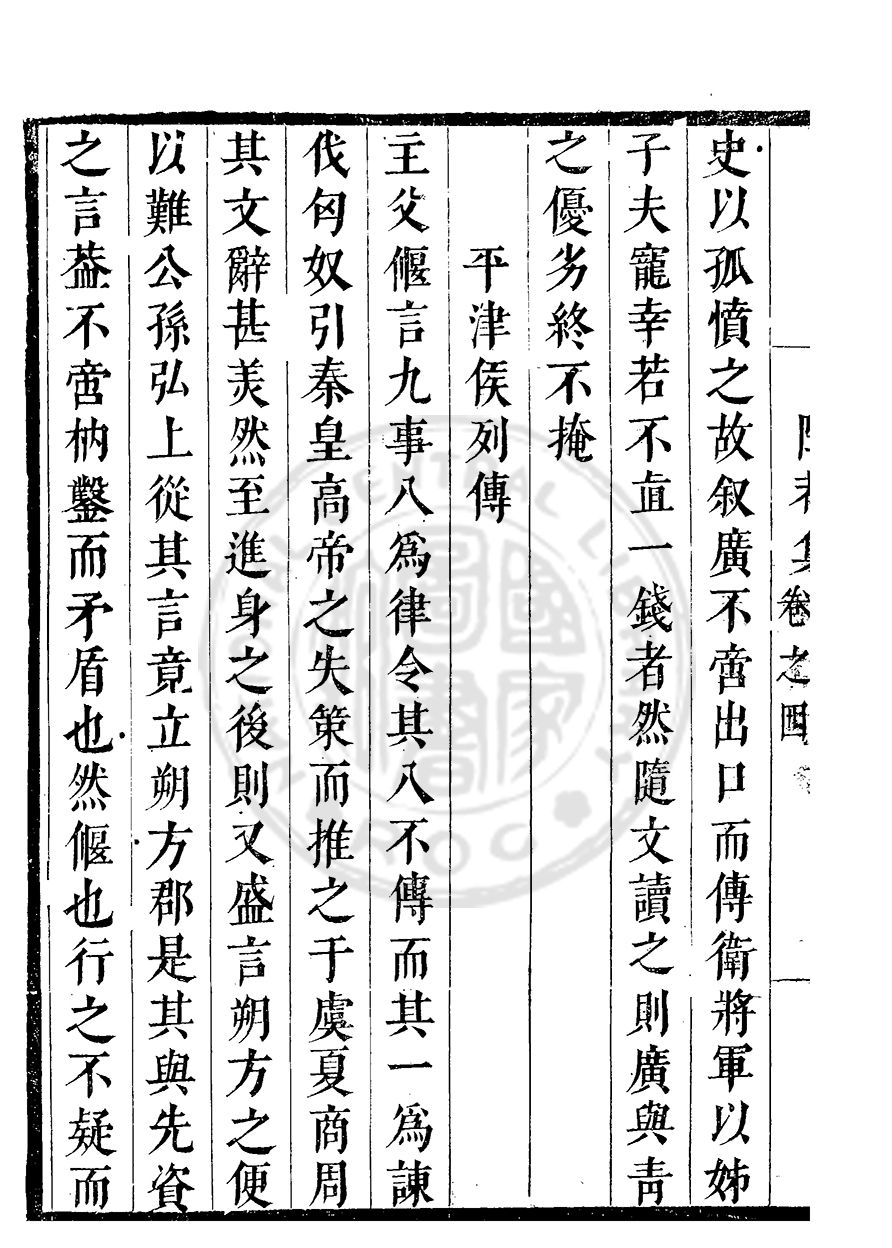 卷之四
史以孤憤之故叙廣不啻出口而傳衛將軍以姊
子夫寵幸若不直一錢者然隨文讀之則廣與青
之優劣終不掩
平津侯列傳
主父偃言九事八爲律令其八不傳而其一爲諫
伐匈奴引秦皇高帝之失策而推之于虞夏商周
其文辭甚美然至進身之後則又盛言朔方之便
以難公孫弘上從其言竟立朔方郡是其與先資
之言葢不啻枘鑿而矛盾也然偃也行之不疑而